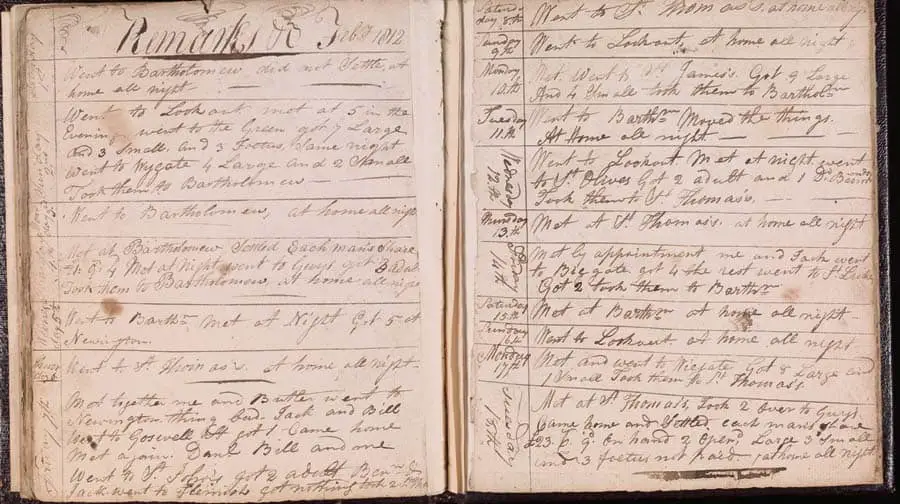 Remarks &c Feby 1812
Went to Bartholomew did not Settle, at
home all night
Went to Lookout met at 5 in the
Evening went to the Green got 7 Large
and 3 Small and 3 Foetus, Same night
Went to Wygate 4 Large and 2 Small
Took them to Bartholomew
Went to Bartholomew, at home all night
Met at Bartholomew Settled Each man's Share
Met at Night went to Guys got
Took them to Bartholomew, at home all night
Went to Barthm Met at Night Got 5 at
Newington.
Went to St Thomas's at home all night
Met together me and Butler went to
Newington thing Bad. Jack and Bill
Went to Goswell St got 1. Came home
Met again. Danl Bill and me
Went to St John's got 2 adult Benn &
Jack went to got nothing took 2
Saturday 8th
Went to St Thomas's. at home all night
Sunday 9th
Went to Lookout, at home all night
Monday 10th
Met. Went to St James's. Got 9 Large
And 4 Small took them to Bartholm
Tuesday 11th
Went to Barthm Moved the things.
At Home all night.
Wednesday 12th
Went to Lookout Met at night went
to St Olives Got 2 adult and 1
Took them to St Thomas's.
Thursday 13th
Met at St Thomas's. at home all night
Friday 14th
Met by appointment me and Jack went
to Big gate got 4 the rest went to St Lukes
Got 2 took them to Barthm
Saturday 15th
Met at Barthm at home all night
Sunday 16th
Went to Lookout at home all night
Monday 17th
Met and went to Wiegate Got 8 Large and
1 Small Took them to St Thomas's
Tuesday 18th
Met at St Thomas's, Took 2 Over to Guys
Came home and Settled, each man's share
£23. 6. 9. On hand 2 Opend Large 3 Small
and 3 foetus not paid at home all night.